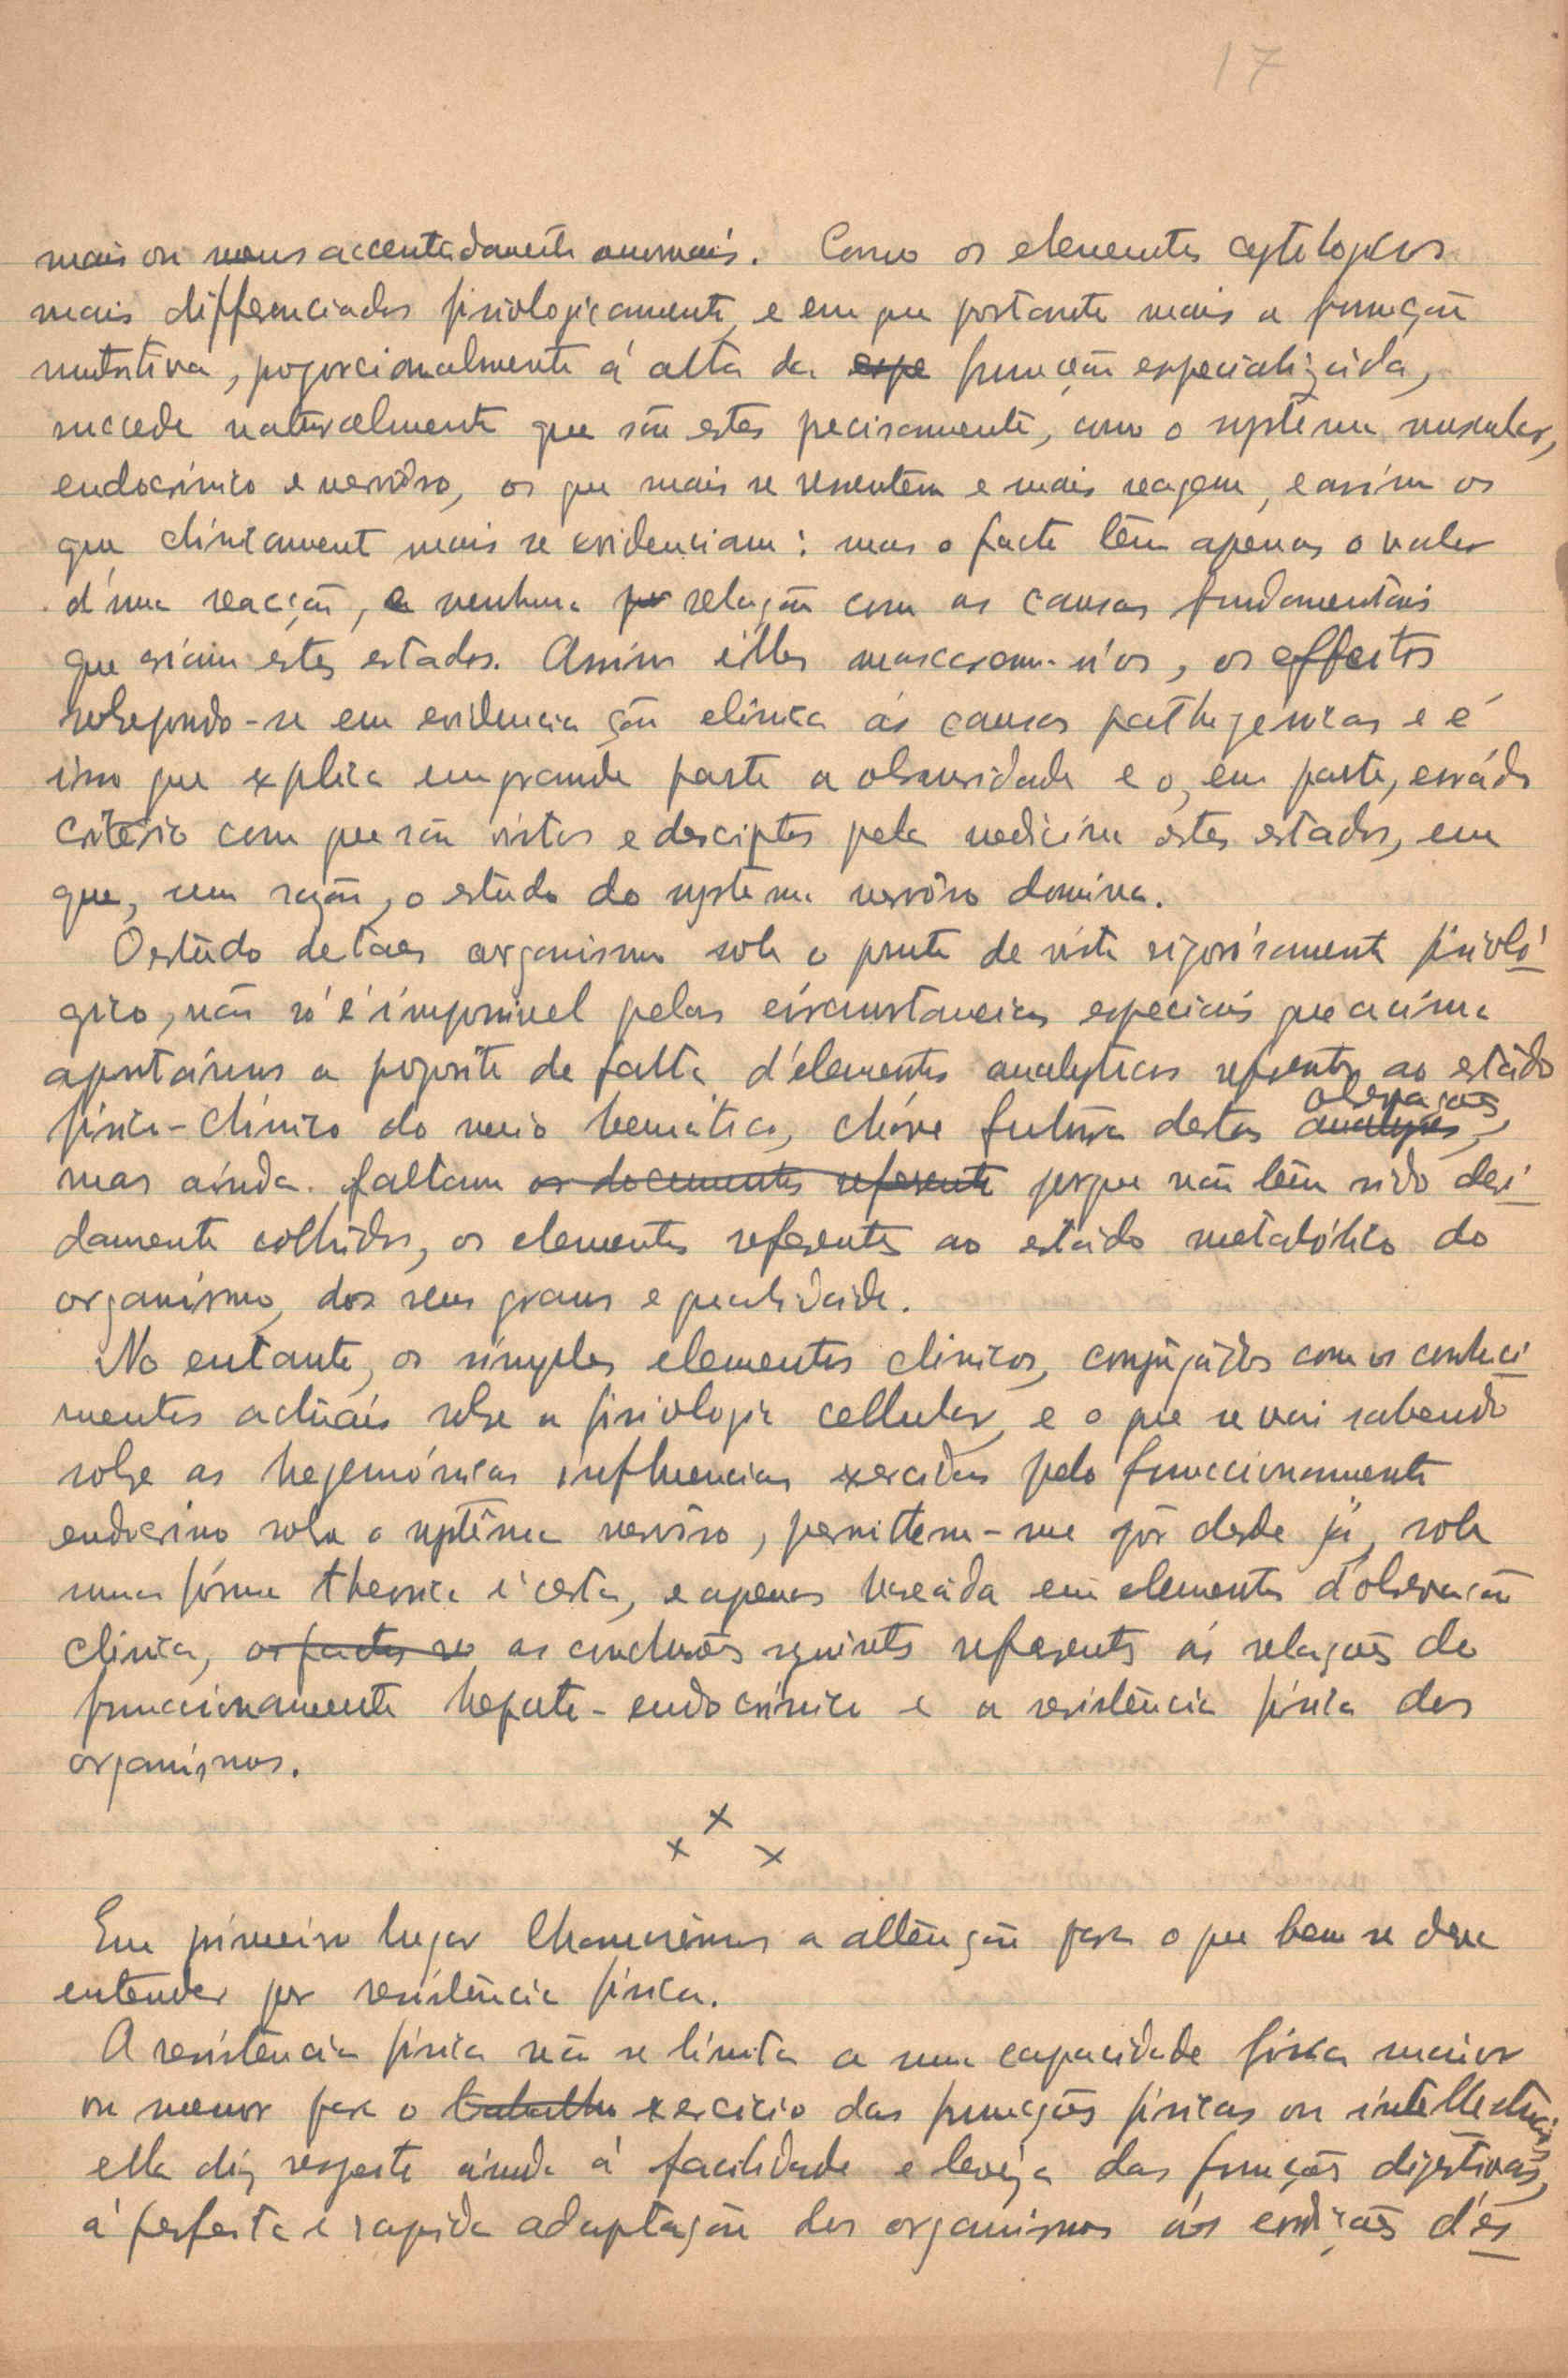 17
mais ou menos accentuadamente anormais. Como os elementos cytologicos
mais differenciados fisiologicamente, e em que portanto mais a funcção
nutritiva, proporcionalmente á alta da expe funcção especializada,
succede naturalmente que são estes precisamente, como o systema muscular,
endocrínico e nervôso, os que mais se resentem e mais reagem, e assim os
que clinicament mais se evidenciam: mas o facto têm apenas o valor
d'uma reacção, e nenhuma relação com as causas fundamentais
que criam estes estados. Assim elles mascaram-n'os, os effeitos
sobrepondo-se em evidenciação clínica ás causas pathogenicas e é
isso que explica em grande parte a obscuridade e o, em parte, errádo
critério com que são vistos e descriptos pela medicina estes estados, em
que, sem razão, o estudo do systema nervôso domina.
O estúdo de taes organismos sob o ponto de vista rigorósamente fisioló-
gico, não só é impossivel pelas circunstancias especiais que acima
apontámos a proposito de falta d'elementos analyticos referentes ao estádo
físico-chímico do meio hemático, cháve futura destas analyses, observações
mas ainda faltam os documentos referente porque não têm sido devi-
damente colhidos, os elementos referentes ao estádo metabólico do
organismo, dos seus graus e qualidade.
No entanto, os simples elementos clinicos, conjugádos com os conheci-
mentos actuais sobre a fisiologia cellular, e o que se vai sabendo
sobre as hegemónicas influencias exercidas pelo funccionamento
endocrino sobre o systêma nervôso, permittem-me pôr desde já, sob
uma fórma theorica é certo, e apenas baseáda em elementos d'observação
clínica, os factos se as conclusões seguintes referentes ás relações do
funccionamento hepato-endocrínico e a resistência física dos
organismos.
x x x
Em primeiro lugar chamarêmos a attenção para o que bem se deve
entender por resistência física.
A resistência física não se limita a uma capacidade física maior
ou menor para o trabalho exercicio das funcções físicas ou intellectuais
ella diz respeito ainda á facilidade e levêza das funções digestivas,
á perfeita e rapida adaptação dos organismos ás condições d'es-